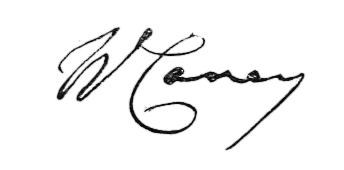 W Caney